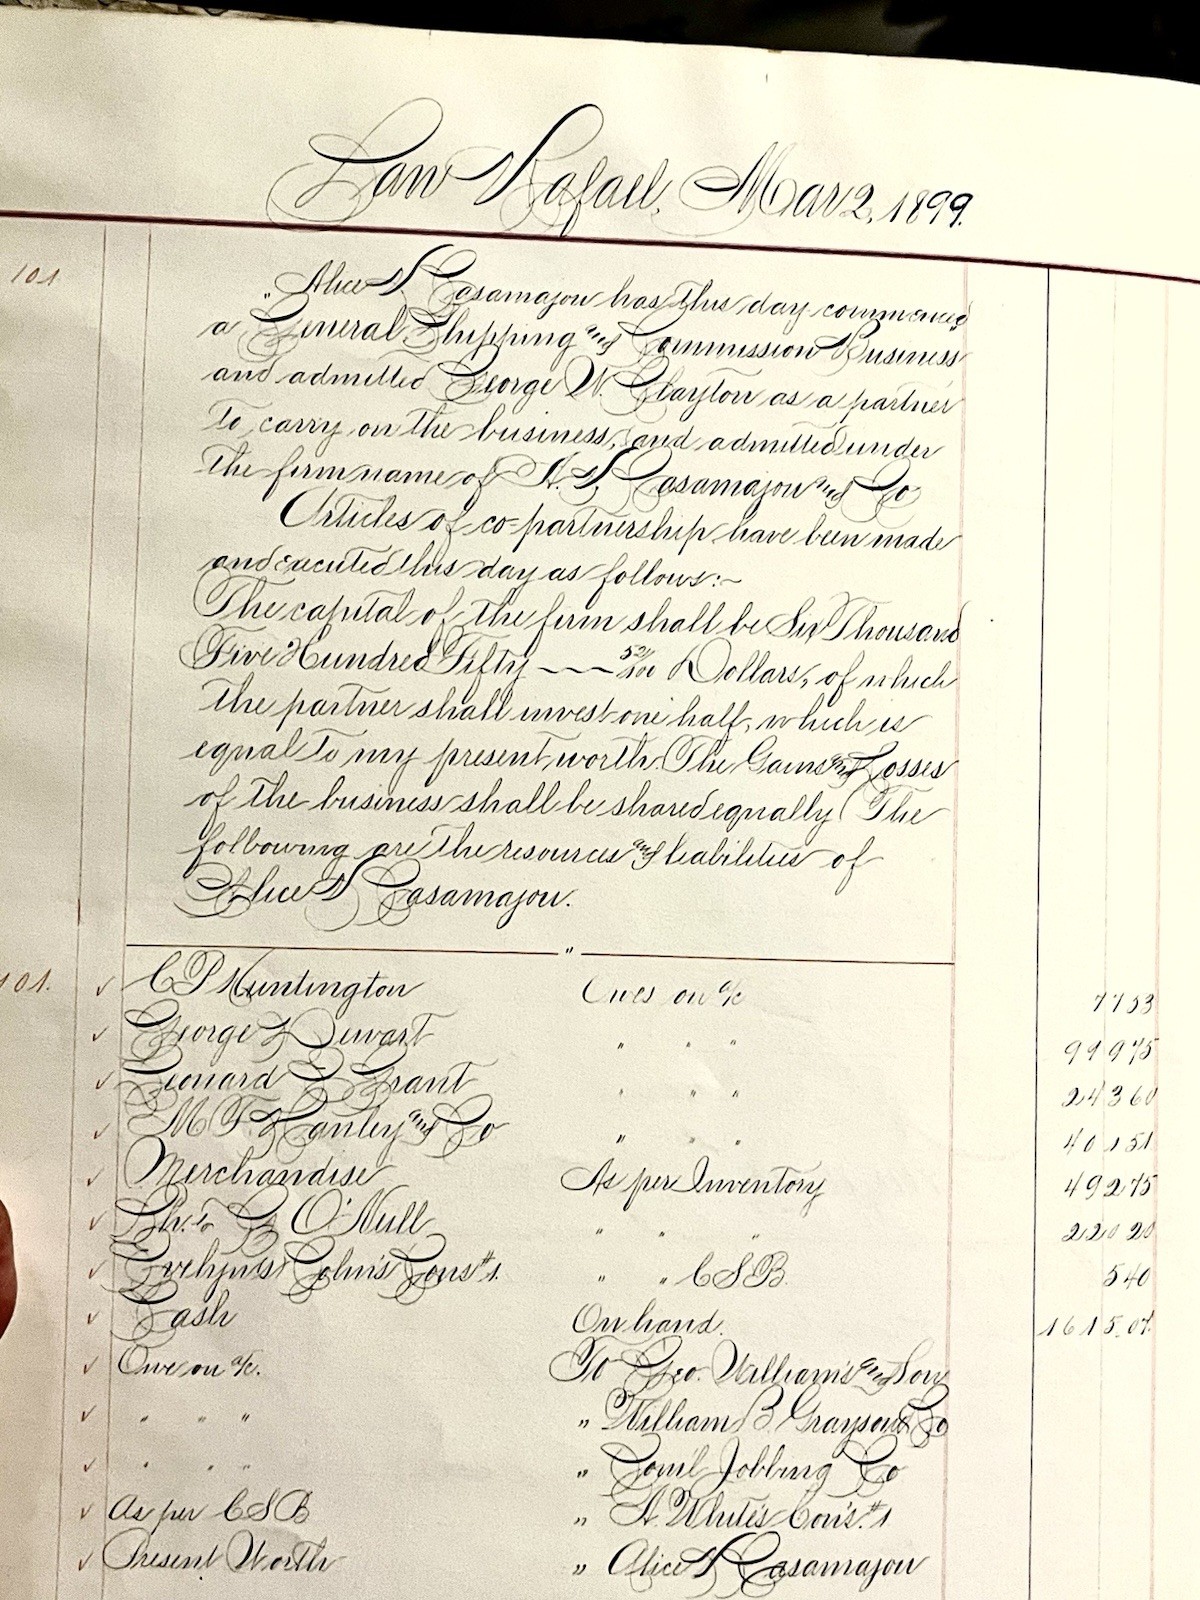 San Rafael, Mar 2, 1899.
101
Alice S. Casamajou has this day commenced
a General Shipping and Commission Business
and admitted George W. Clayton as a partner
to carry on the business, and admitted under
the firm name of A. S. Casamajou and Co
Articles of co=partnership have been made
and executed this day as follows:~
The capital of the firm shall be Six Thousand
Five Hundred Fifty ~~~ 52/100 Dollars, of which
the partner shall invest one half, which is
equal to my present worth. The Gains and Losses
of the business shall be shared equally. The
following are the resources and liabilities of
Alice S Casamajou.
"
101. ✓ C P Huntington Owes on a/c 7753
✓ George Dewart " " " 99975
✓ Leonard Grant " " " 24360
✓ M T Hanley and Co " " " 40151
✓ Merchandise As per Inventory 49275
✓ O'Null " " " 22020
✓ Evelyn's Cons't #1. " " C S B. 540
✓ Cash On hand. 1615.07.
✓ Owe on a/c. To Geo. Williams and Son
✓ " " " " William B. Grayson & Co
✓ " " " " Jobbing Co
✓ As per C S B " A. White's Cons't. #1
✓ Present Worth " Alice S Casamajou